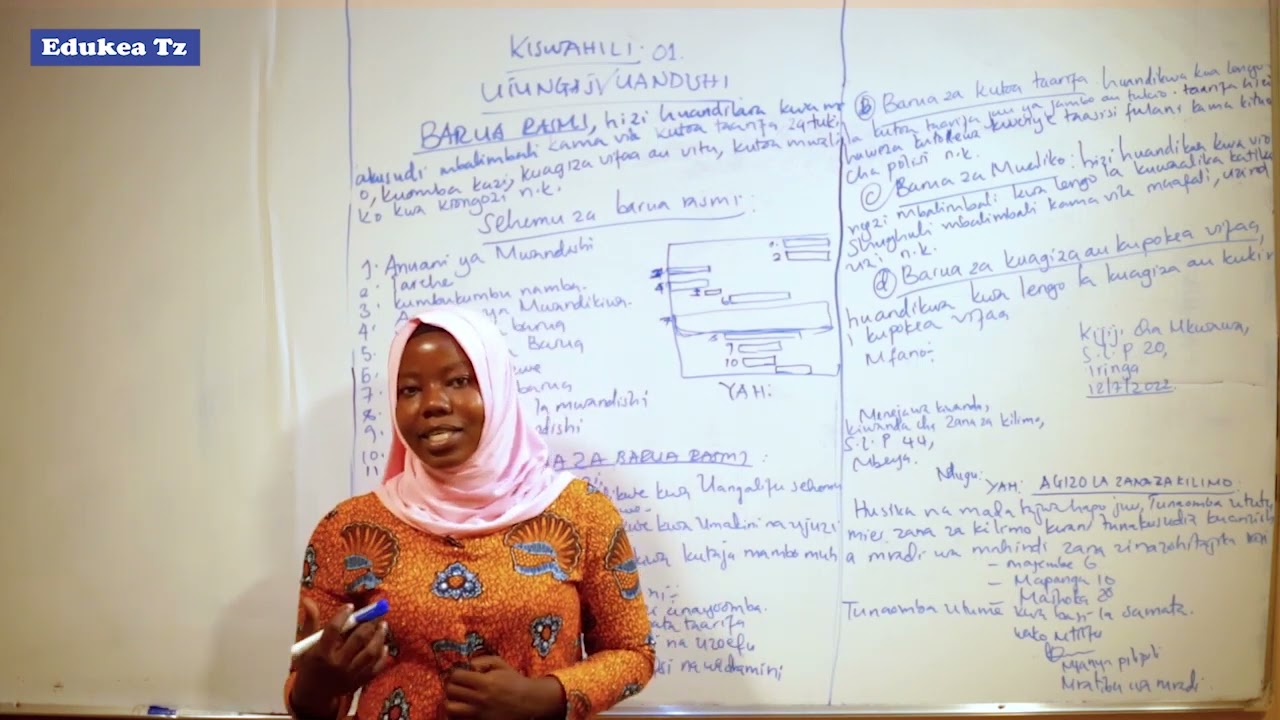 Edukea Tz
KISWAHILI 01.
UTUNGAJI/UANDISHI
BARUA RASMI, hizi huandikwa kwa
akusudi mbalimbali kama vile kutoa taarifa za tuki
o, kuomba kazi, kuagiza vifaa au vitu, kutoa mwali
ko kwa kiongozi n.k.
Sehemu za barua rasmi:
1. Anuani ya Mwandishi
2. Tarehe
3. kumbukumbu namba.
4. ya Mwandikiwa.
5. barua
6. Barua
7.
8. barua
9. la mwandishi
10. dishi
11
1.
2
3
4
7
10
YAH:
ZA BARUA RASMI:
kwe kwa Uangalifu sehemu
kwe kwa Umakini na ujuzi
kwa kutaja mambo muh
ni:-
unayoomba.
taarifa
na uzoefu
na wadamini
(b) Barua za kutoa taarifa huandikwa kwa lengo
la kutoa taarifa juu ya jambo au tukio. taarifa hizi
huweza kupokewa kwenye taasisi fulani kama kituo
cha polisi n.k.
(c) Barua za Mualiko: hizi huandikwa kwa vio
ngozi mbalimbali kwa lengo la kuwaalika katika
Shughuli mbalimbali kama vile maafali, uzind
uzi n.k.
(d) Barua za kuagiza au kupokea vifaa,
huandikwa kwa lengo la kuagiza au
kupokea vifaa
Mfano:
Kijiji cha Mkwawa,
S.L.P 20,
Iringa
12/7/2022.
Meneja wa kiwanda,
kiwanda cha Zana za kilimo,
S.L.P 44,
Mbeya.
Ndugu:
YAH: AGIZO LA ZANA ZA KILIMO
Husika na mada tajwa hapo juu, Tunaomba ututu
mies zana za kilimo kwani tunakusudia kuanzish
a mradi wa mahindi zana zinazohitajika
- majembe 6
- Mapanga 10
- Mashoka 20
Tunaomba utume kwa basi la samata.
wako mtiifu
Manya pilipili
Mratibu wa mradi.